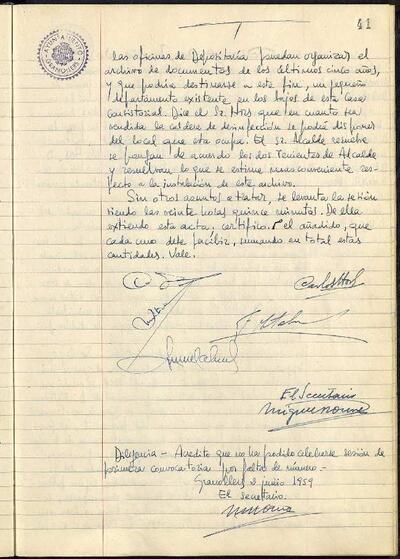 41
AYUNTAMIENTO
GRANOLLERS
las oficinas de Depositaría puedan organizar el
archivo de documentos de los últimos cinco años,
y que podría destinarse a este fin, un pequeño
departamento existente en los bajos de esta Casa
Consistorial. Dice el Sr. Hors que en cuanto sea
vendida la caldera de desinfección se podrá disponer
del local que esta ocupa. El Sr. Alcalde resuelve
se pongan de acuerdo los dos Tenientes de Alcalde
y resuelvan lo que se estime mas conveniente res-
pecto a la instalación de este archivo.
Sin otros asuntos a tratar, se levanta la sesión
siendo las veinte horas quince minutos. De ella
extiendo esta acta, certifico. El añadido, que
cada uno debe percibir, sumando en total estas
cantidades. Vale.
Carlos Hors
El Secretario
Diligencia - Acredito que no ha podido celebrarse sesión de
primera convocatoria por falta de número.-
Granollers 2 junio 1959
El secretario.